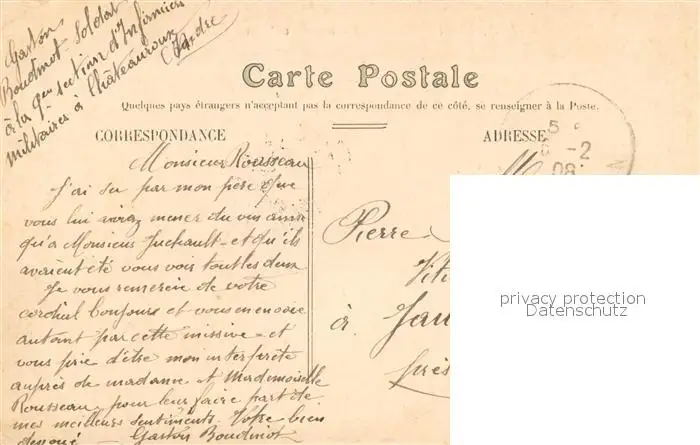 Gaston
Boudinot Soldat
à la 9em section d'Infirmiers
militaires à Châteauroux
(Indre)
Carte Postale
Quelques pays étrangers n'acceptant pas la correspondance de ce côté, se renseigner à la Poste.
CORRESPONDANCE
ADRESSE
5
-2
08
Monsieur Rousseau
J'ai su par mon père que
vous lui aviez mener du vin ainsi
qu'a Monsieur et qu'ils
avaient été vous voir tout les deux
Je vous remercie de votre
cordial bonjours et vous en envoie
autant par cette missive et
vous prie d'être mon interprète
auprès de madame et Mademoiselle
Rousseau, pour leur faire part de
mes meilleurs sentiments. Votre bien
dévoué Gaston Boudinot
Pierre
Viti
à Jau
près
privacy protection
Datenschutz